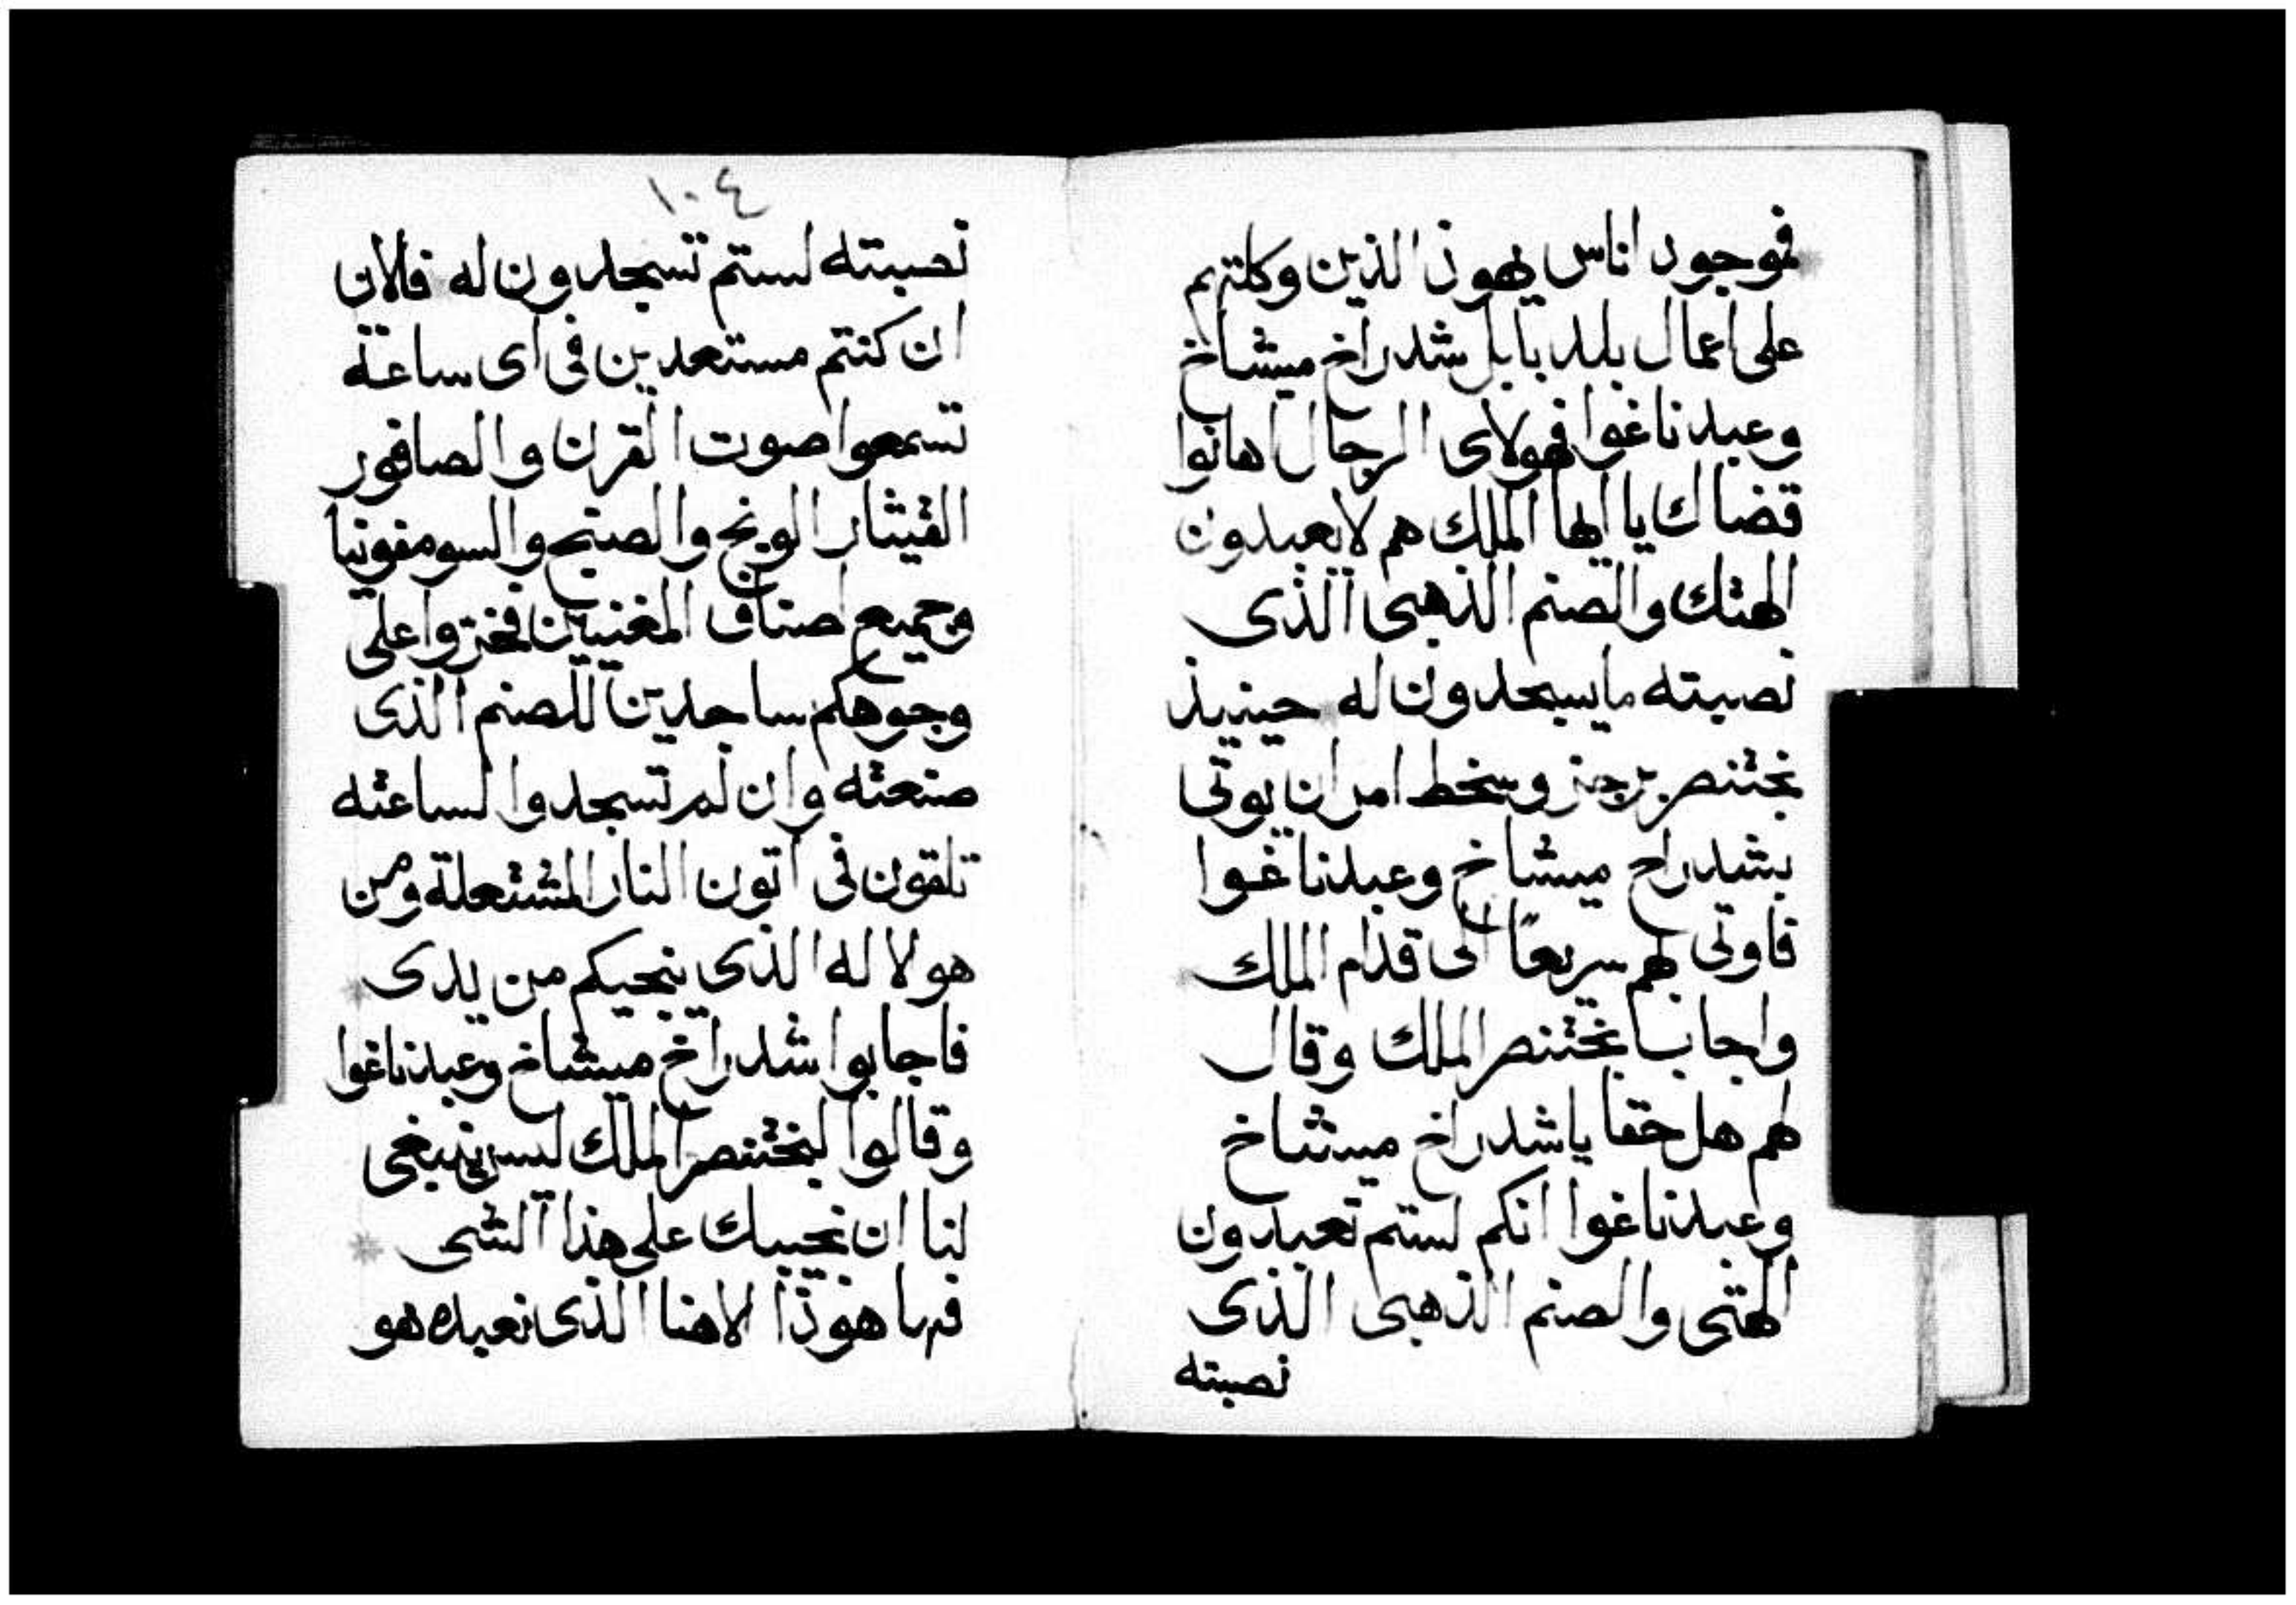 فموجود اناس يهوذ الذين وكلتهم
على اعمال بلد بابل شدراخ ميشاخ
وعبدناغوا فهولاى الرجال اهانوا
قضاك يا ايها الملك هم لايعبدون
الهتك والصنم الذهبى الذى
نصبته مايسجدون له حينيذ
بختنصر برجز وسخط امر ان يوتى
بشدراخ ميشاخ وعبدناغوا
فاوتى بهم سريعًا الى قدام الملك
واجاب بختنصر الملك وقال
لهم هل حقا ياشدراخ ميشاخ
وعبدناغوا انكم لستم تعبدون
الهتى والصنم الذهبى الذى
نصبته
١٠٤
نصبته لستم تسجدون له فالان
ان كنتم مستعدين فى اى ساعة
تسمعوا صوت القرن والصافور
القيثار الونج والصنج والسومفونيا
وجميع اصناف المغنيين فخروا على
وجوهكم ساجدين للصنم الذى
صنعته وان لم تسجدوا لساعته
تلقون فى اتون النار المشتعلة ومن
هو الاله الذى ينجيكم من يدى
فاجابوا شدراخ ميشاخ وعبدناغوا
وقالوا لبختنصر الملك ليس ينبغى
لنا ان نجيبك على هذا الشى
فها هوذا الاهنا الذى نعبده هو